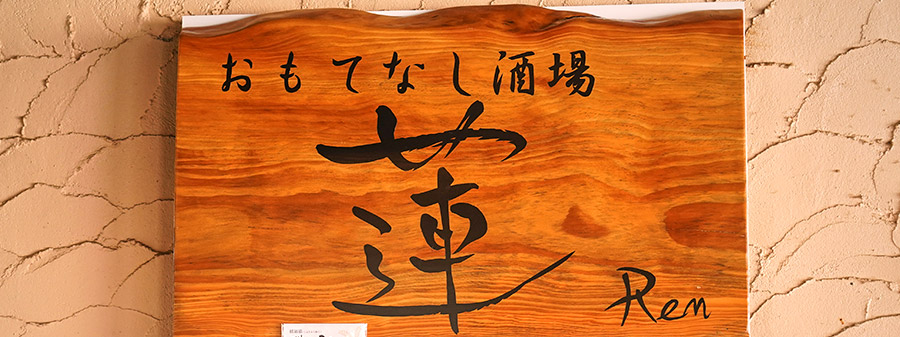 おもてなし酒場
蓮
Ren